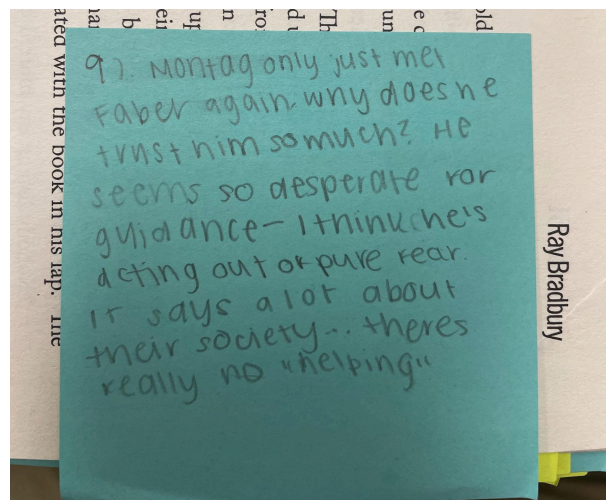 9). Montag only just met
Faber again. why does he
trust him so much? He
seems so desperate for
guidance- I think he's
acting out of pure fear.
It says a lot about
their society... theres
really no "helping"
Ray Bradbury
ated with the book in his lap. The